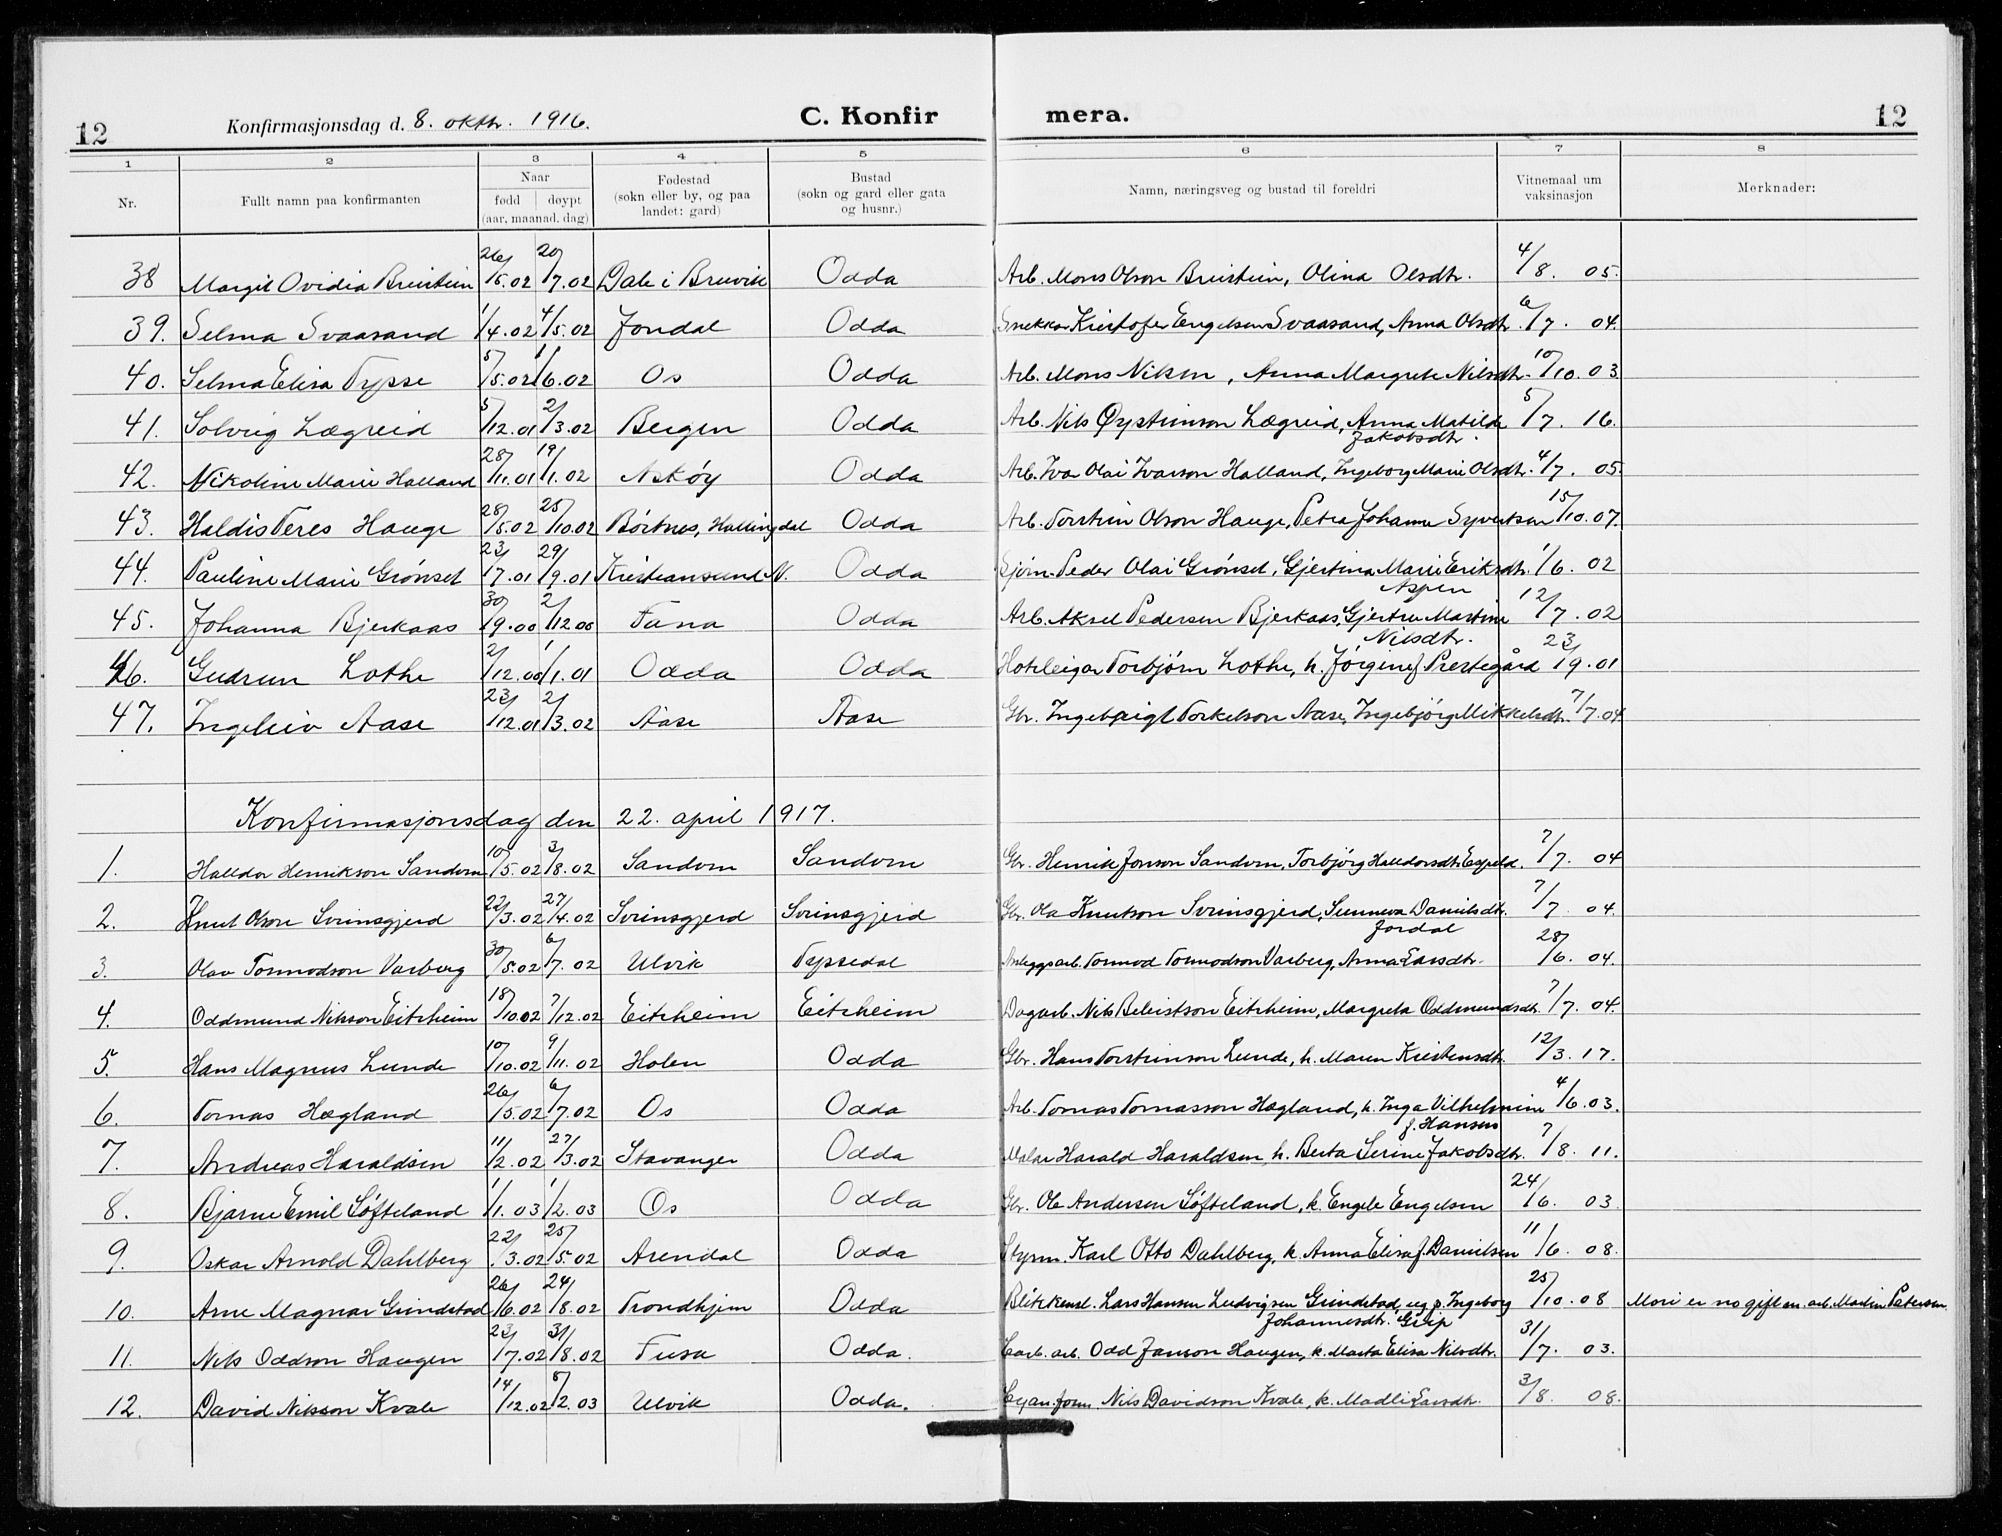 12 Konfirmasjonsdag d. 8. oktbr. 1916. C. Konfirmera. 12
1 2 3 4 5 6 7 8
Nr. Fullt namn paa konfirmanten Naar fødd døypt (aar, maanad, dag) Fødestad (sokn eller by, og paa landet: gard) Bustad (sokn og gard eller gata og husnr.) Namn, næringsveg og bustad til foreldri Vitnemaal um vaksinasjon Merknader:
38 Margit Ovidia Breistein 26/5.02 20/7.02 Dale i Bruvik Odda Arb. Mons Olson Breistein, Olina Olsdtr. 4/8. 05.
39. Selma Svaasand 1/4.02 4/5.02 Jondal Odda Snekkar Kristofer Engelsen Svaasand, Anna Olsdtr. 6/7. 04.
40. Selma Elisa Tysse 5/5.02 1/6.02 Os Odda Arb. Mons Nilsen, Anna Margrete Nilsdtr. 10/10.03.
41. Solveig Lægreid 5/12.01 2/3.02 Bergen Odda Arb. Nils Øysteinson Lægreid, Anna Matilde Jakobsdtr. 5/7. 16.
42. Nikoline Marie Halland 28/11.01 19/1.02 Askøy Odda Arb. Ivar Olai Ivarson Halland, Ingeborg Marie Olsdtr. 4/7. 05
43. Haldis Teres Hauge 28/5.02 25/10.02 Børtnes, Hallingdal Odda Arb. Torstein Olson Hauge, Petra Johanne Syvertsen 15/10.07.
44. Pauline Marie Grønset 23/7.01 29/9.01 Kristiansund N. Odda Sjøm. Peder Olai Grønset, Gjertina Marie Eriksdtr. Aspen 1/6. 02
45. Johanna Bjerkaas 30/9.00 2/12.00 Fana Odda Arb. Aksel Pedersen Bjerkaas, Gjertru Martine Nilsdtr. 12/7. 02
46. Gudrun Lothe 2/12.00 1/1.01 Odda Odda Hoteleigar Torbjørn Lothe, k. Jørgine f. Prestegård 23/9.01
47. Ingeleiv Aase 23/12.01 2/3.02 Aase Aase Gbr. Ingebrigt Torkelson Aase, Ingebjørg Mikkelsdtr. 7/7.04
Konfirmasjonsdag den 22. april 1917.
1. Halldor Henrikson Sandven 10/5.02 3/8.02 Sandven Sandven Gbr. Henrik Jonson Sandven, Torbjørg Halldorsdtr. Espeld. 7/7. 04
2. Knut Olson Sveinsgjerd 22/3.02 27/4.02 Sveinsgjerd Sveinsgjerd Gbr. Ola Knutson Sveinsgjerd, Sunneva Danielsdtr. Jordal 7/7. 04.
3. Olav Tormodson Varberg 30/5.02 6/7.02 Ulvik Tyssedal Anleggsarb. Tormod Tormodson Varberg, Anna Larsdtr. 28/6. 04.
4. Oddmund Nilsson Eitrheim 18/10.02 7/12.02 Eitrheim Eitrheim Dagarb. Nils Beleistson Eitrheim, Margreta Oddmundsdtr. 7/7. 04.
5. Hans Magnus Lunde 10/10.02 9/11.02 Holen Odda Gbr. Hans Torsteinson Lunde, k. Maren Kristensdtr. 12/3. 17.
6. Tomas Hægland 26/5.02 6/7.02 Os Odda Arb. Tomas Tomasson Hægland, k. Inga Vilhelmine f. Hansen 4/6.03.
7. Andreas Haraldsen 11/2.02 27/3.02 Stavanger Odda Malar Harald Haraldsen, k. Berta Serine Jakobsdtr. 7/8. 11.
8. Bjarne Emil Søfteland 1/1.03 1/2.03 Os Odda Gbr. Ole Andersen Søfteland, k. Engele Engelsen 24/6. 03.
9. Oskar Arnold Dahlberg 22/3.02 25/5.02 Arendal Odda Styrm. Karl Otto Dahlberg, k. Anna Elisa f. Danielsen 11/6. 08.
10. Arne Magnar Grindstad 26/6.02 24/8.02 Trondhjem Odda Blikkensl. Lars Hansen Ludvigsen Grindstad, ug p. Ingeborg Johannesdtr. Grip 25/10.08 Mori er no gift m. arb. Martin Petersen
11. Nils Oddson Haugen 23/7.02 31/8.02 Fusa Odda. Carb. arb. Odd Janson Haugen, k. Marta Elisa Nilsdtr. 31/7. 03.
12. David Nilsson Kvale 14/12.02 8/2.03 Ulvik Odda. Cyan. form. Nils Davidson Kvale, k. Madli Larsdtr. 3/8 08.